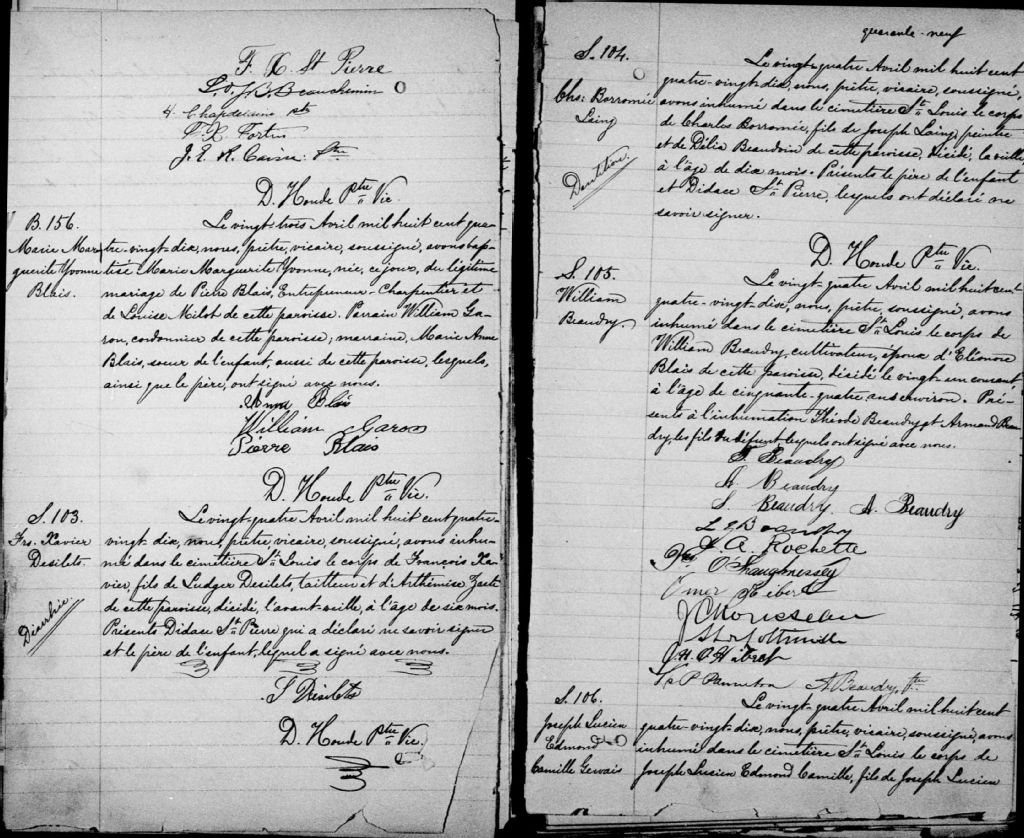 F. X. St Pierre
L. O. J. B. Beauchemin
F. X. Fortin
D. Houde Ptre Vic.
B. 156.
Marie Mar-
guerite Yvonne
Blais.
Le vingt-trois Avril mil huit cent qua-
tre-vingt-dix, nous, prêtre, vicaire, soussigné, avons bap-
tisé Marie Marguerite Yvonne, née, ce jour, du légitime
mariage de Pierre Blais, Entrepreneur-Charpentier et
de Louise Milot de cette paroisse. Parrain William Ga-
ron, cordonnier de cette paroisse; marraine, Marie Anne
Blais, soeur de l'enfant, aussi de cette paroisse, lesquels,
ainsi que le père, ont signé avec nous.
Anna Blais
William Garon
Pierre Blais
D. Houde Ptre Vic.
S. 103.
Frs. Xavier
Desilets.
Diarrhée
Le vingt-quatre Avril mil huit cent quatre-
vingt-dix, nous, prêtre vicaire, soussigné, avons inhu-
mé dans le cimetière St Louis le corps de François Xa-
vier, fils de Ludger Desilets, tailleur et d'Arthémise
de cette paroisse, décédé, l'avant-veille, à l'âge de six mois.
Présents Didace St Pierre qui a déclaré ne savoir signer
et le père de l'enfant, lequel a signé avec nous.
L Désilets
D. Houde Ptre Vic.
quarante-neuf
S. 104.
Chs: Borromée
Laing
Dentition.
Le vingt-quatre Avril mil huit cent
quatre-vingt-dix, nous, prêtre, vicaire, soussigné,
avons inhumé dans le cimetière St Louis le corps
de Charles Borromée, fils de Joseph Laing, peintre
et de Délia Beaudoin de cette paroisse, décédé, la veille
à l'âge de dix mois. Présents le père de l'enfant
et Didace St Pierre, lesquels ont déclaré ne
savoir signer.
D. Houde Ptre Vic.
S. 105.
William
Beaudry.
Le vingt-quatre Avril mil huit cent
quatre-vingt-dix, nous, prêtre, soussigné, avons
inhumé dans le cimetière St Louis le corps de
William Beaudry, cultivateur, époux d'Eléonore
Blais de cette paroisse, décédé le vingt-un courant
à l'âge de cinquante-quatre ans environ. Pré-
sents à l'inhumation Théode Beaudry et Armand Beau-
dry, les fils du défunt lesquels ont signé avec nous.
T. Beaudry
A. Beaudry
S. Beaudry A. Beaudry
J. A. Rochette
O'Shaughnessey
Omer Hébert
A Beaudry, Ptre
S. 106.
Joseph Lucien
Edmond
Camille Gervais
Le vingt-quatre Avril mil huit cent
quatre-vingt-dix, nous, prêtre, vicaire, soussigné, avons
inhumé dans le cimetière St Louis le corps de
Joseph Lucien Edmond Camille, fils de Joseph Lucien